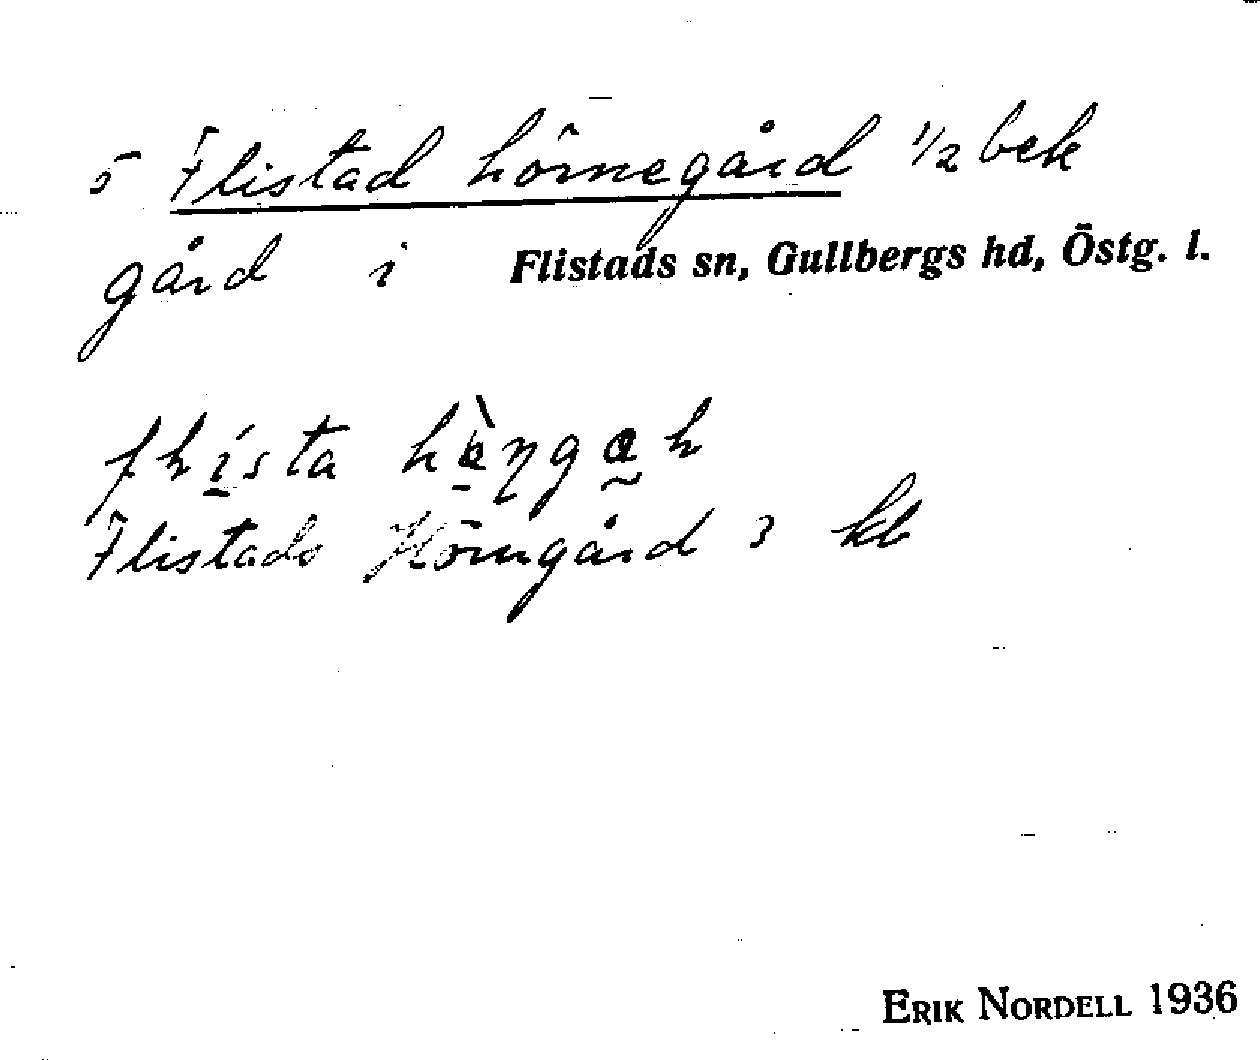 5 Flistad hörnegård 1/2 bek
gård i Flistads sn, Gullbergs hd, Östg. l.
Flistads Hörngård 3 kb
ERIK NORDELL 1936